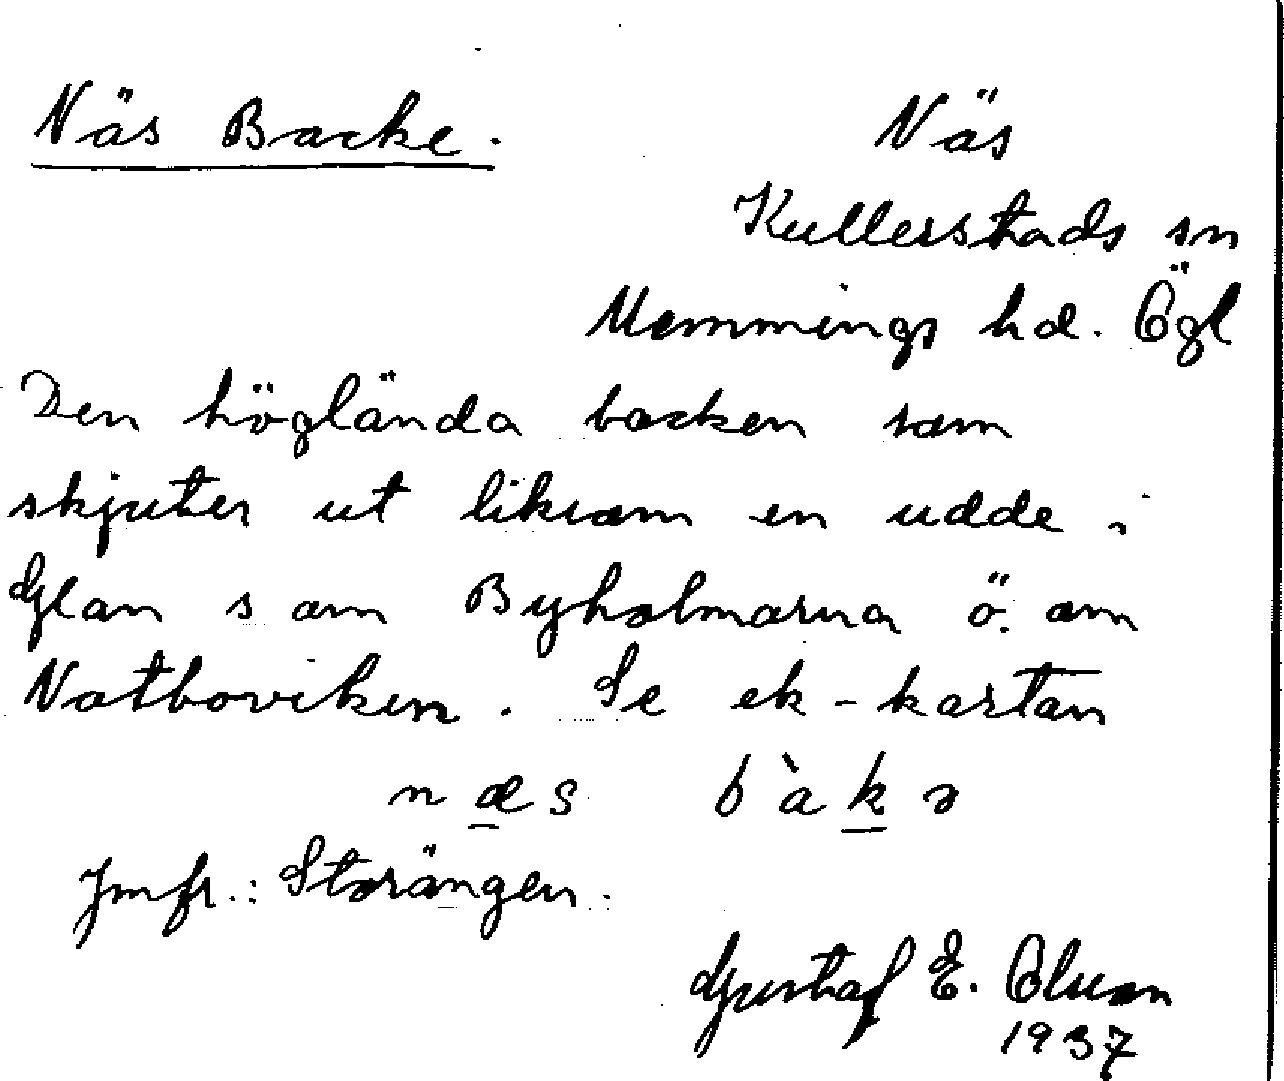 Näs Backe.
Näs
Kullerstads sn
Memmings hd. Ögl
Den höglända backen som
skjuter ut liksom en udde i
Glan s om Byholmarna ö. om
Notboviken. Se ek-kartan
næs bàkə
Jmfr.: Storängen.
Gustaf E. Olsson
1937